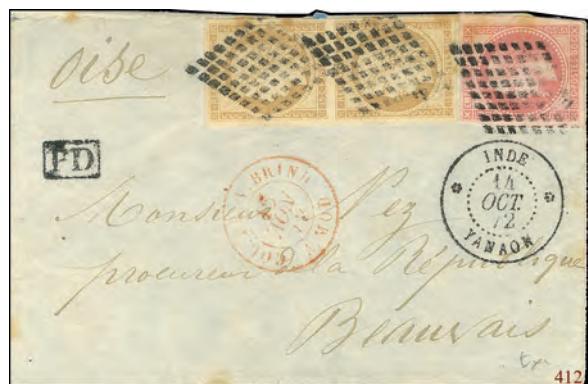 Oise
PD
INDE
14
OCT.
72
YANAON
BRIND
NOV
Monsieur Pez
procureur de la République
Beauvais
412